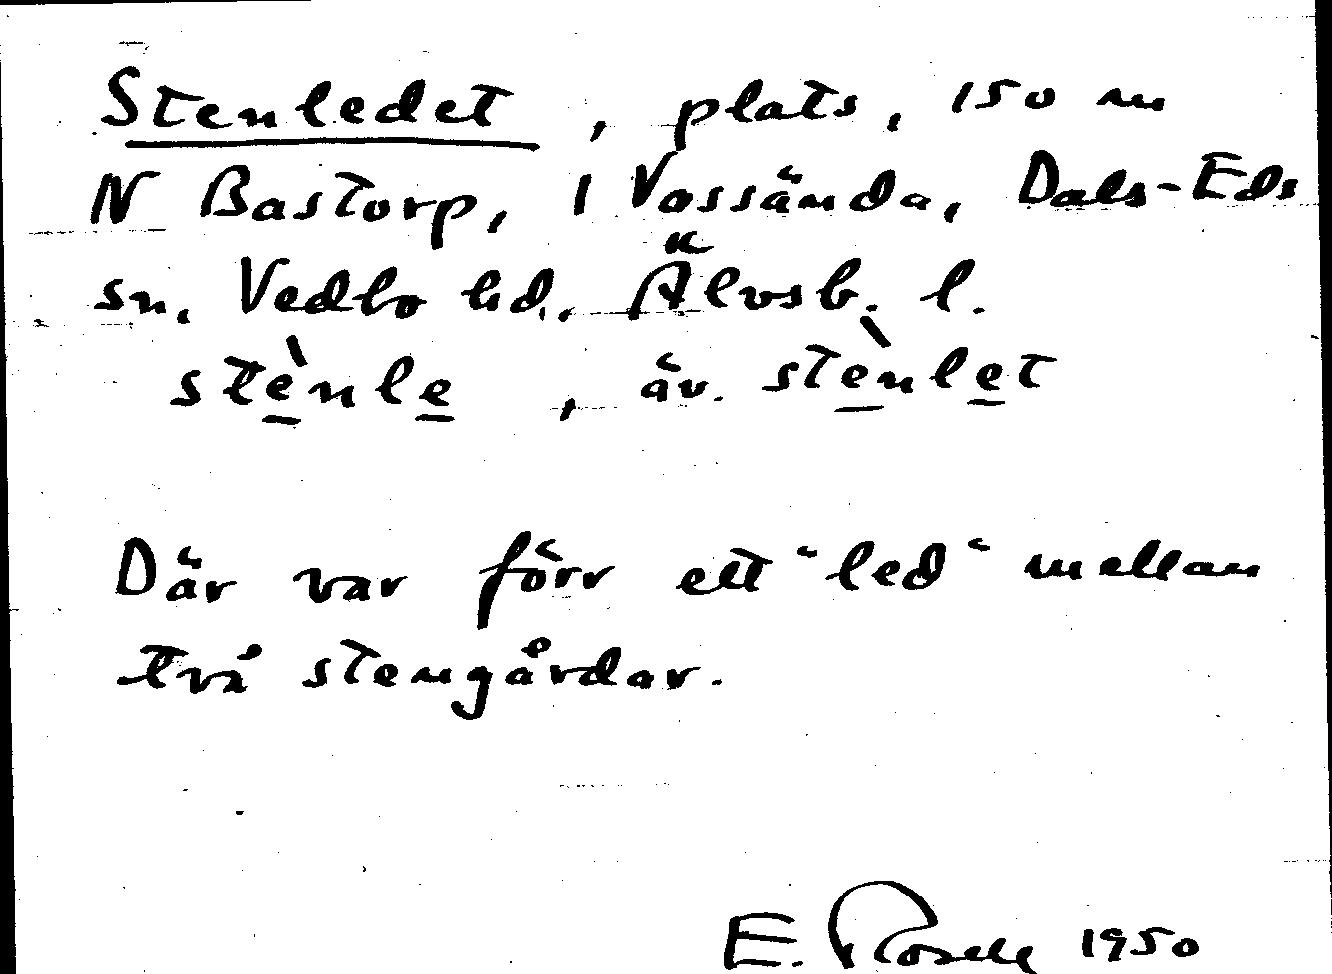 Stenledet, plats, 150 m
N Bastorp, 1 Vassända, Dals-Eds
sn, Vedbo hd, Älvsb. l.
stènle, äv. stènlet
Där var förr ett "led" mellan
två stengårdar.
E. Rosell 1950